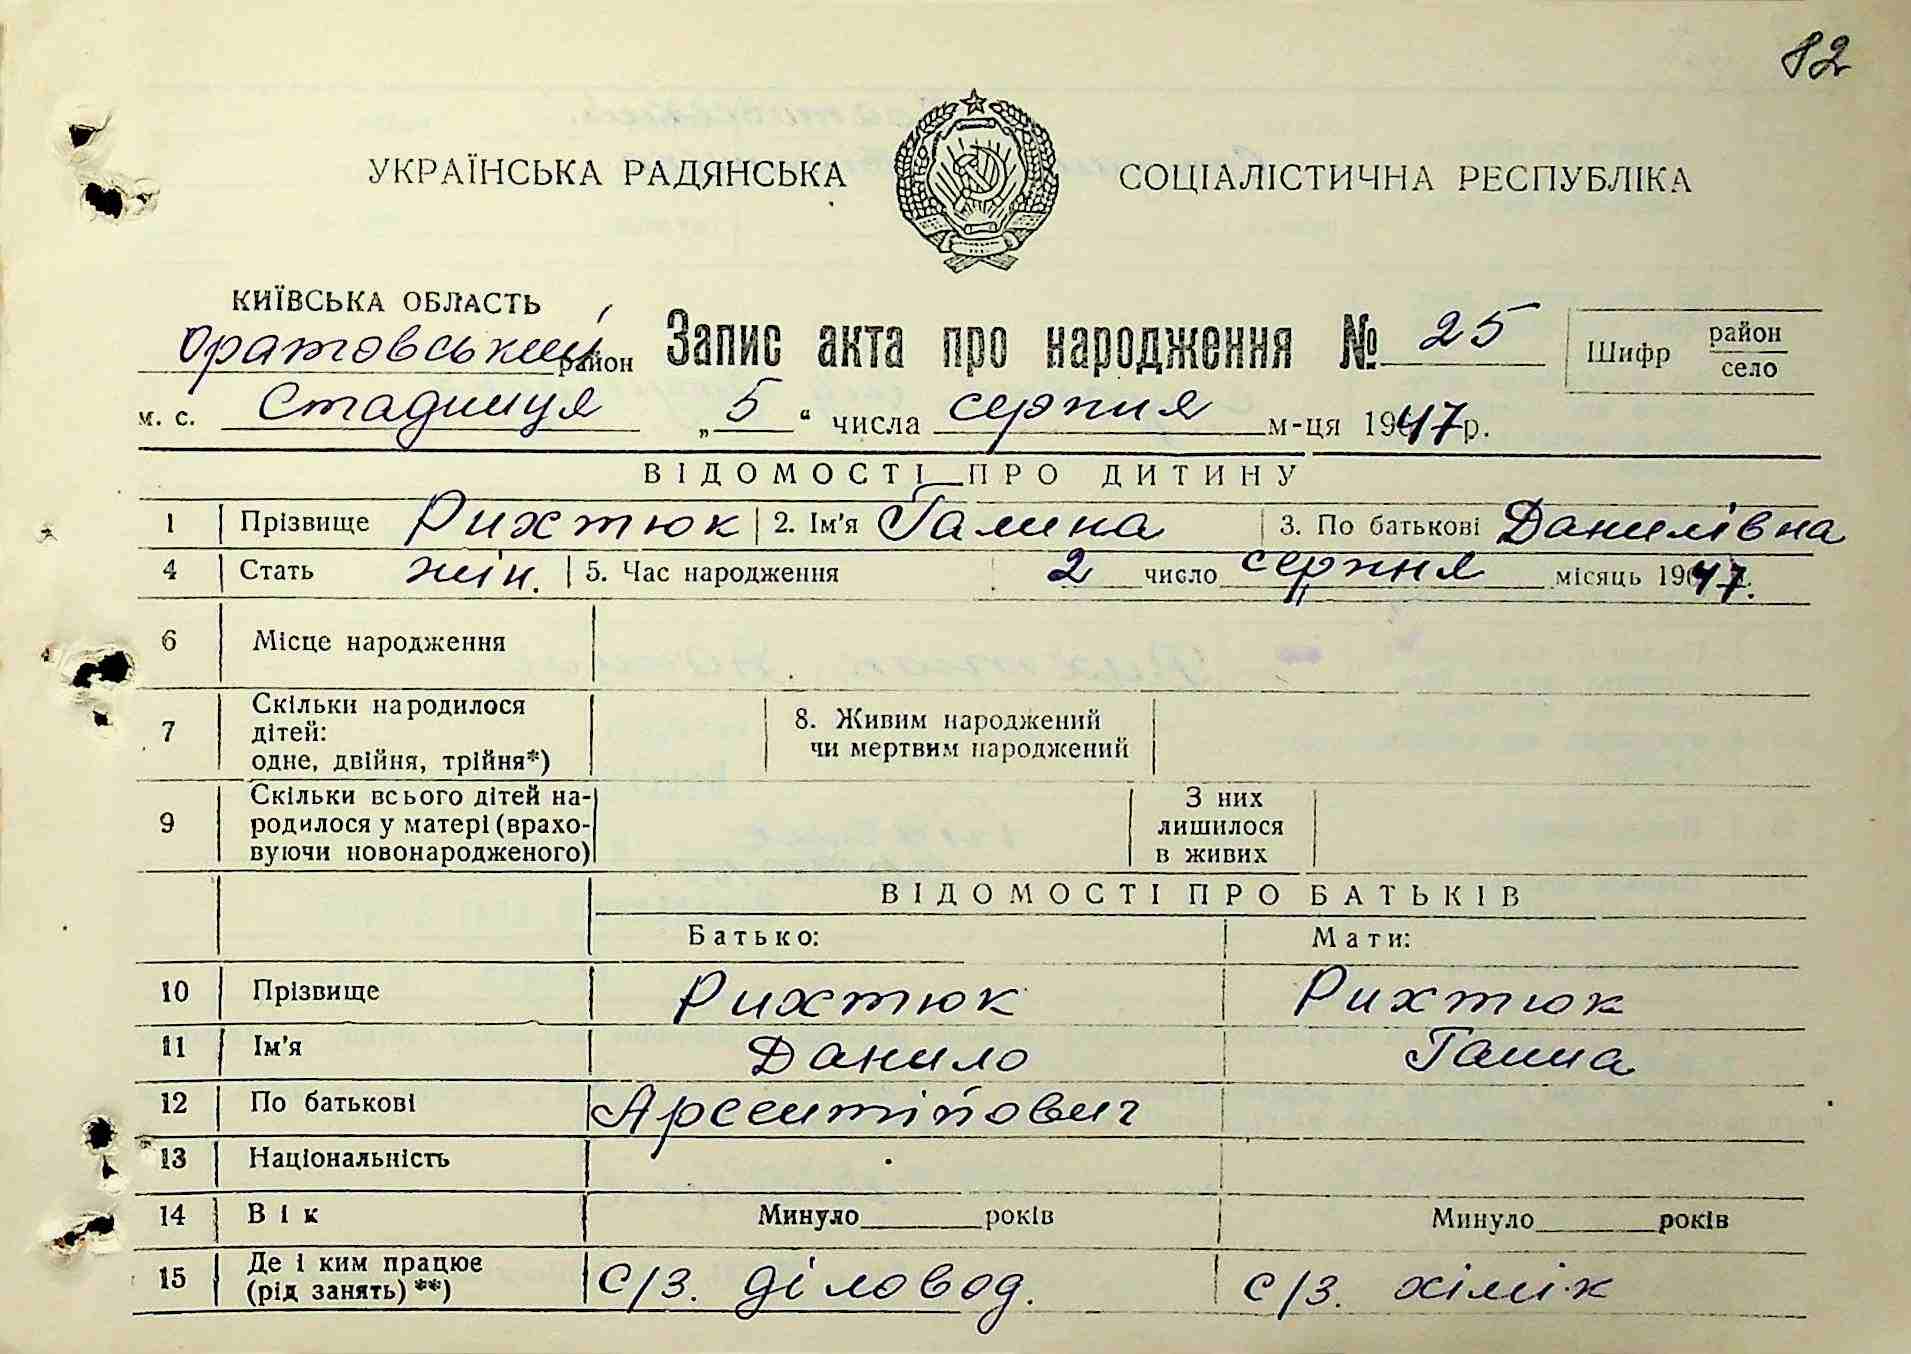 82
УКРАЇНСЬКА РАДЯНСЬКА СОЦІАЛІСТИЧНА РЕСПУБЛІКА
КИЇВСЬКА ОБЛАСТЬ
Оратовський район Запис акта про народження № 25 Шифр район село
м. с. Стадниця „5“ числа серпня м-ця 1947 р.
ВІДОМОСТІ ПРО ДИТИНУ
1 Прізвище Рихтюк 2. Ім'я Галина 3. По батькові Данилівна
4 Стать жін. 5. Час народження 2 число серпня місяць 1947 р.
6 Місце народження
7 Скільки народилося дітей: одне, двійня, трійня*) 8. Живим народжений чи мертвим народжений
9 Скільки всього дітей народилося у матері (враховуючи новонародженого) З них лишилося в живих
ВІДОМОСТІ ПРО БАТЬКІВ
Батько: Мати:
10 Прізвище Рихтюк Рихтюк
11 Ім'я Данило Ганна
12 По батькові Арсентійович
13 Національність
14 Вік Минуло років Минуло років
15 Де і ким працює (рід занять) **) с/з. діловод. с/з. хімік